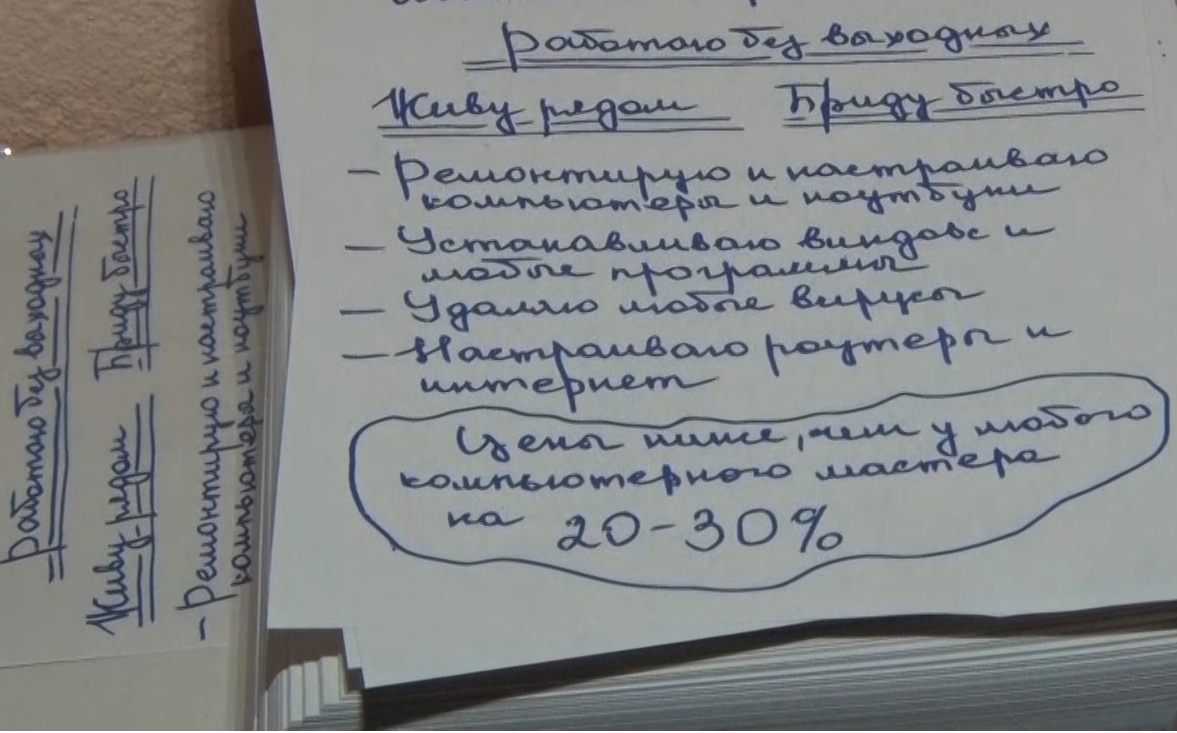 Работаю без выходных
Живу рядом Приду быстро
- Ремонтирую и настраиваю
компьютеры и ноутбуки
- Устанавливаю виндовс и
любые программы
- Удаляю любые вирусы
- Настраиваю роутеры и
интернет
Цены ниже, чем у любого
компьютерного мастера
на 20-30%
Работаю без выходных
Живу рядом Приду быстро
- Ремонтирую и настраиваю
компьютеры и ноутбуки